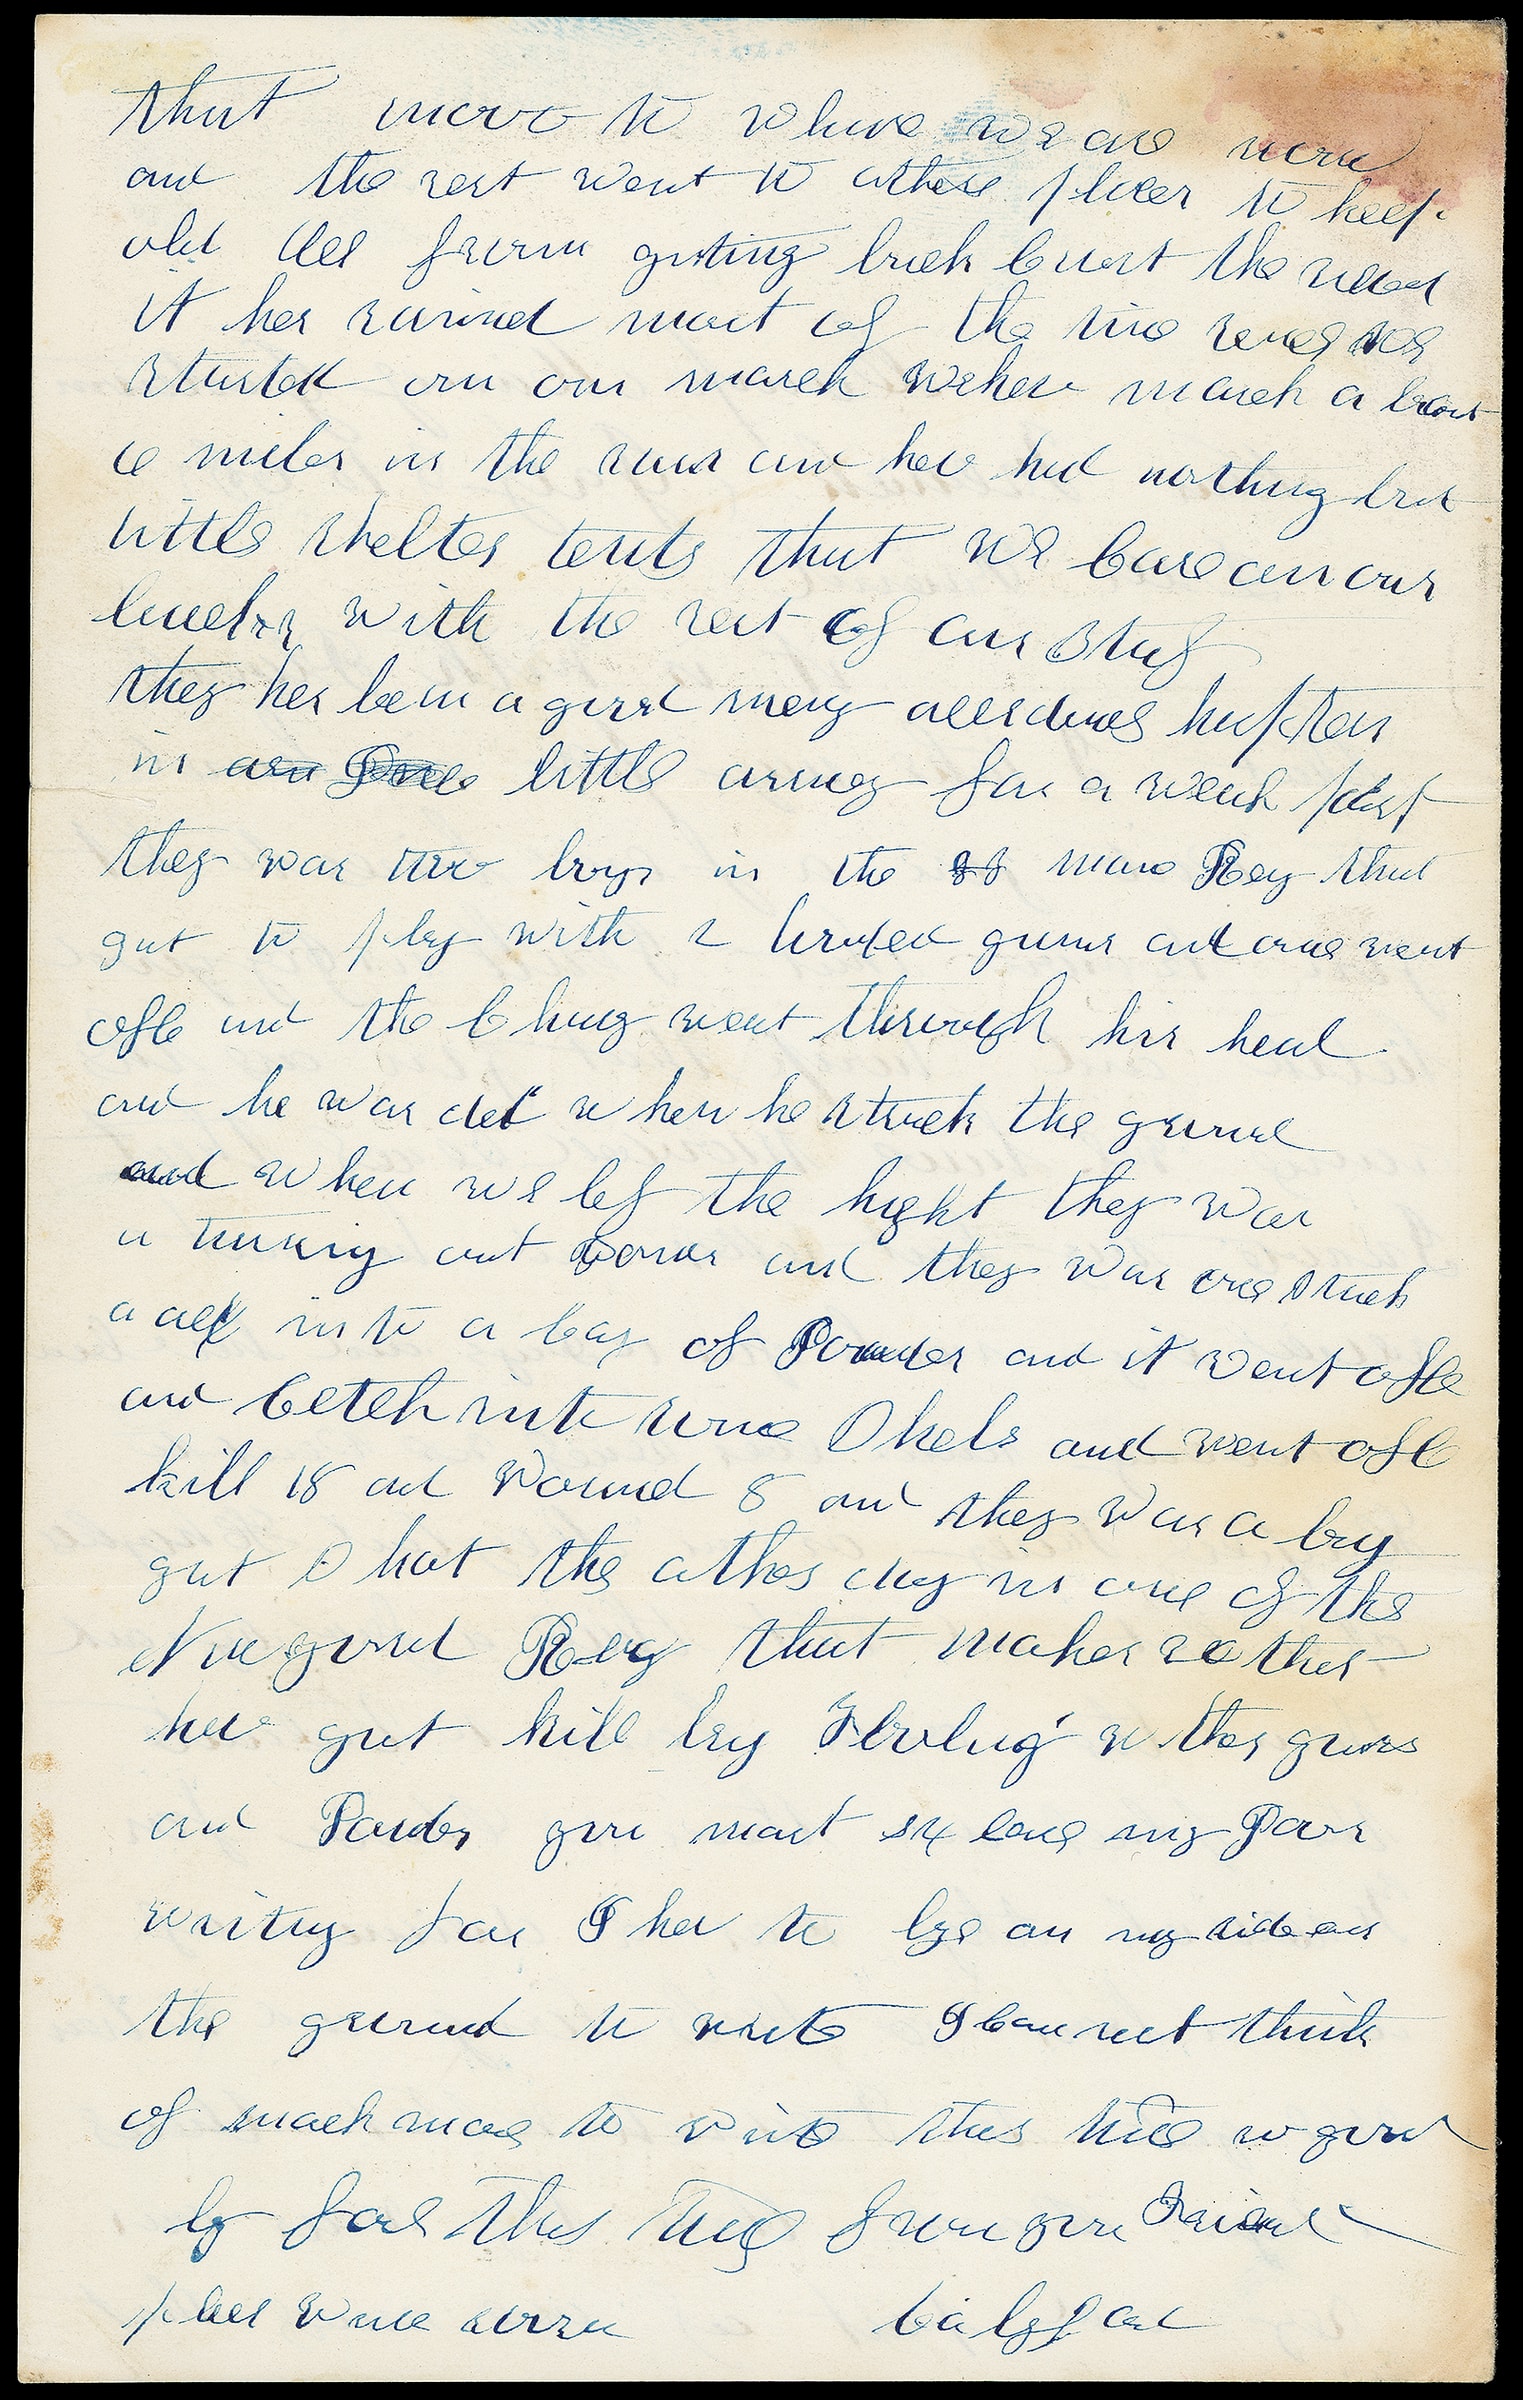 that move to whare we are now
and the rest went to other places to keep
old Lee from geting back Cros't the
it has raind most of the time
started on our march wehav march a bout
6 miles in the rain and hav had nothing but
little shelter tents that we Care on our
backs with the rest of our stuf
they has been a good meny happen
in little armey for a week past
they was two boys in the Mane Reg that
got to play with 2 loaded guns and one went
ofe and the Chug went through his head
and he was ded when he struck the ground
and when we lef the hight they was
a turning out and they was one struck
a axe into a bag of Pouder and it went ofe
and Cetch into some Shels and went ofe
kill 18 and Wound 8 and they was a boy
got Shot the other day in one of the
Newgersd Reg that makes 20 that
hav got kill by with guns
and Pouder you most my Pore
writing for I hav to lye on my side on
the ground to write I Cannot think
of mach more to write this time so good
by fore this time from your Freind
pleas write soon